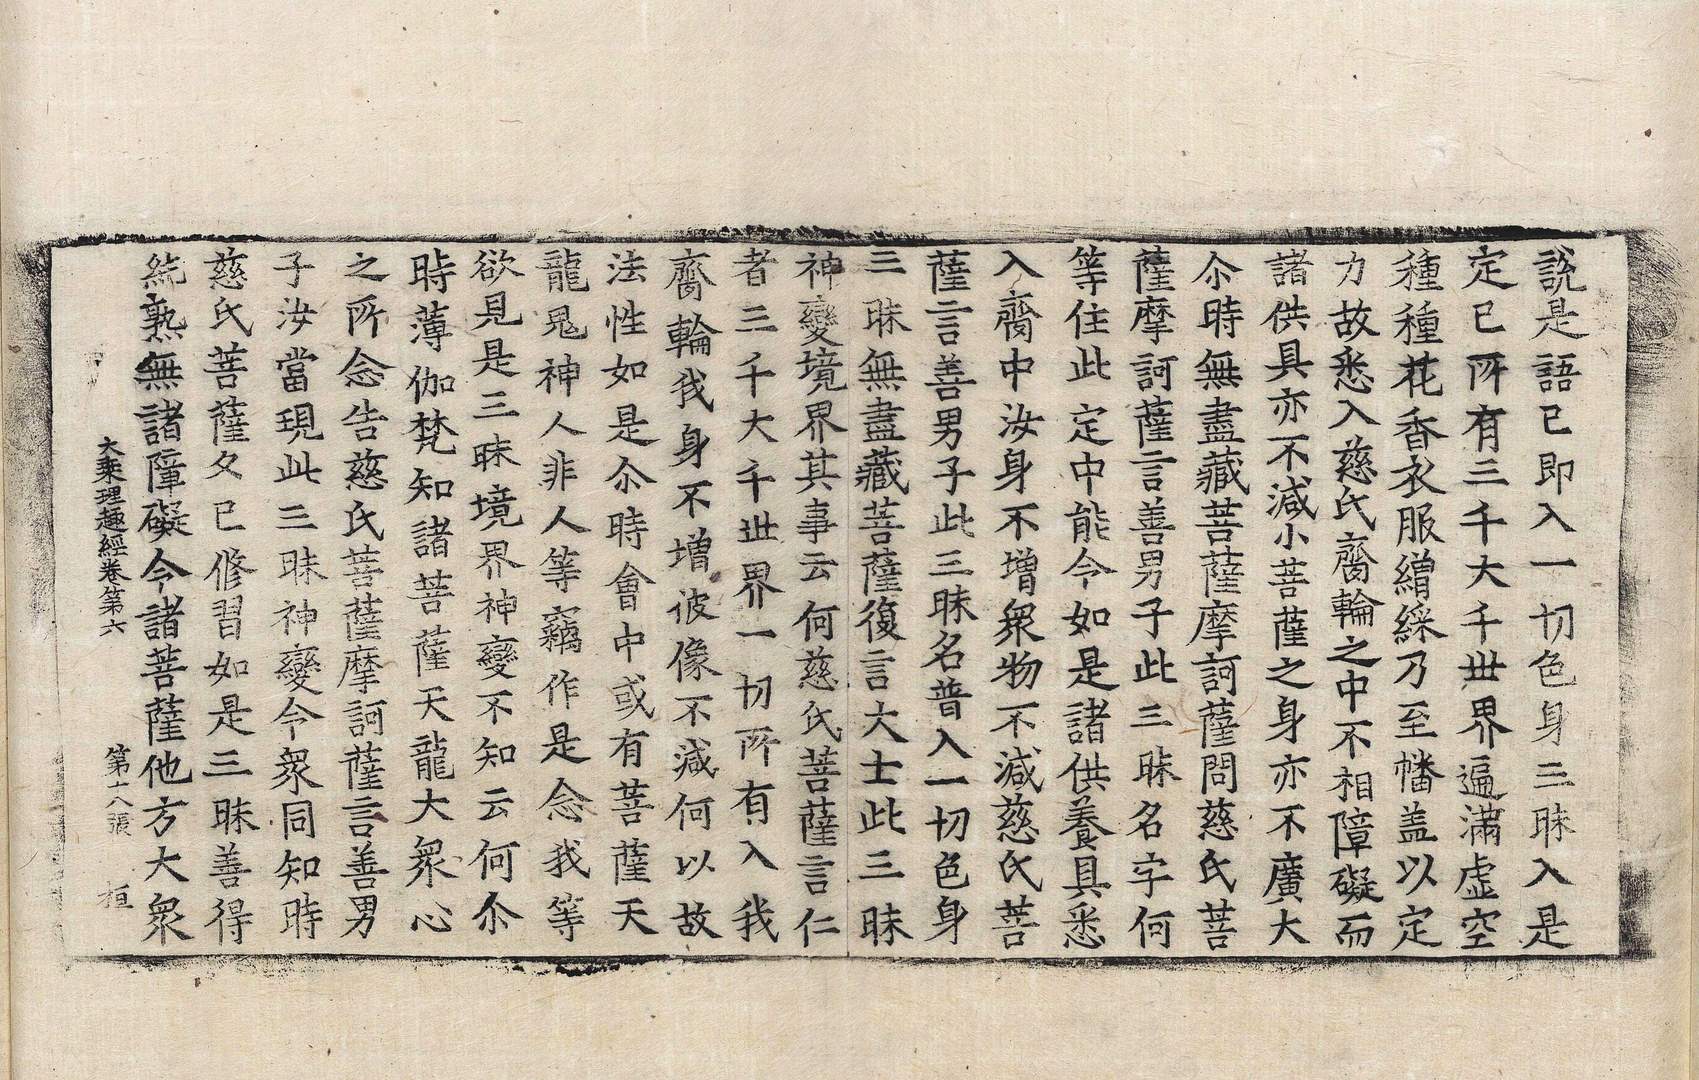 說是語已即入一切色身三昧入是
定已所有三千大千世界遍滿虛空
種種花香衣服繒綵乃至幡盖以定
力故悉入慈氏齎輪之中不相障礙而
諸供具亦不減小菩薩之身亦不廣大
尒時無盡藏菩薩摩訶薩問慈氏菩
薩摩訶薩言善男子此三昧名字何
等住此定中能令如是諸供養具悉
入齎中汝身不增衆物不減慈氏菩
薩言善男子此三昧名普入一切色身
三昧無盡藏菩薩復言大士此三昧
神變境界其事云何慈氏菩薩言仁
者三千大千世界一切所有入我
齎輪我身不增彼像不減何以故
法性如是尒時會中或有菩薩天
龍鬼神人人非人等竊作是念我等
欲見是三昧境界神變不知云何尒
時薄伽梵知諸菩薩天龍大衆心
之所念告慈氏菩薩摩訶薩言善男
子汝當現此三昧神變令衆同知時
慈氏菩薩久已修習如是三昧善得
純熟無諸障礙令諸菩薩他方大衆
大乘理趣經卷第六 第十八張 桓